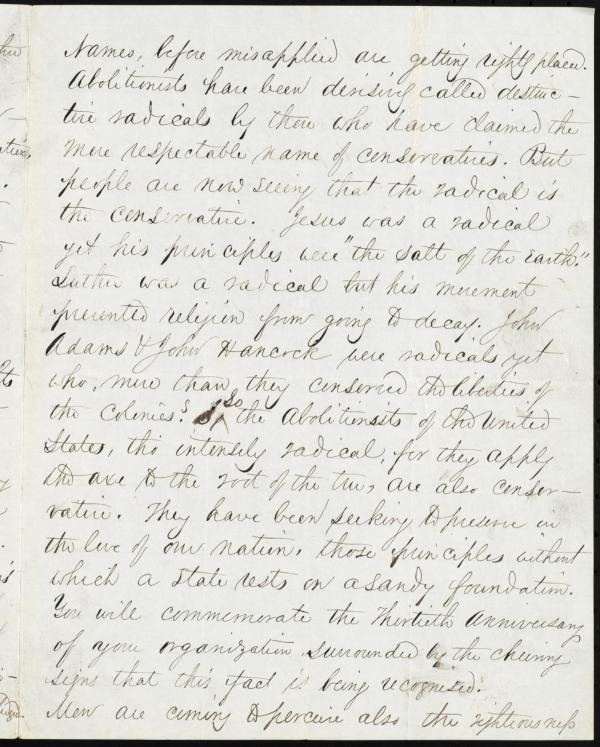 Names, before misapplied are getting rightly placed.
Abolitionists have been derisively called destruc-
tive radicals by those who have claimed the
more respectable name of conservatives. But
people are now seeing that the radical is
the conservative. Jesus was a radical
yet his principles were "the salt of the Earth."
Luther was a radical but his movement
prevented religion from going to decay. John
Adams & John Hancock were radicals yet
who, more than they conserved the liberties of
the Colonies? So the Abolitionists of the United
States, tho intensely radical, for they apply
the axe to the root of the tree, are also conser-
vative. They have been seeking to preserve in
the love of our nation, those principles without
which a State rests on a sandy foundation.
You will commemorate the Thirtieth Anniversary
of your organization surrounded by the cheering
signs that this fact is being recognized.
Men are coming to perceive also the righteousness